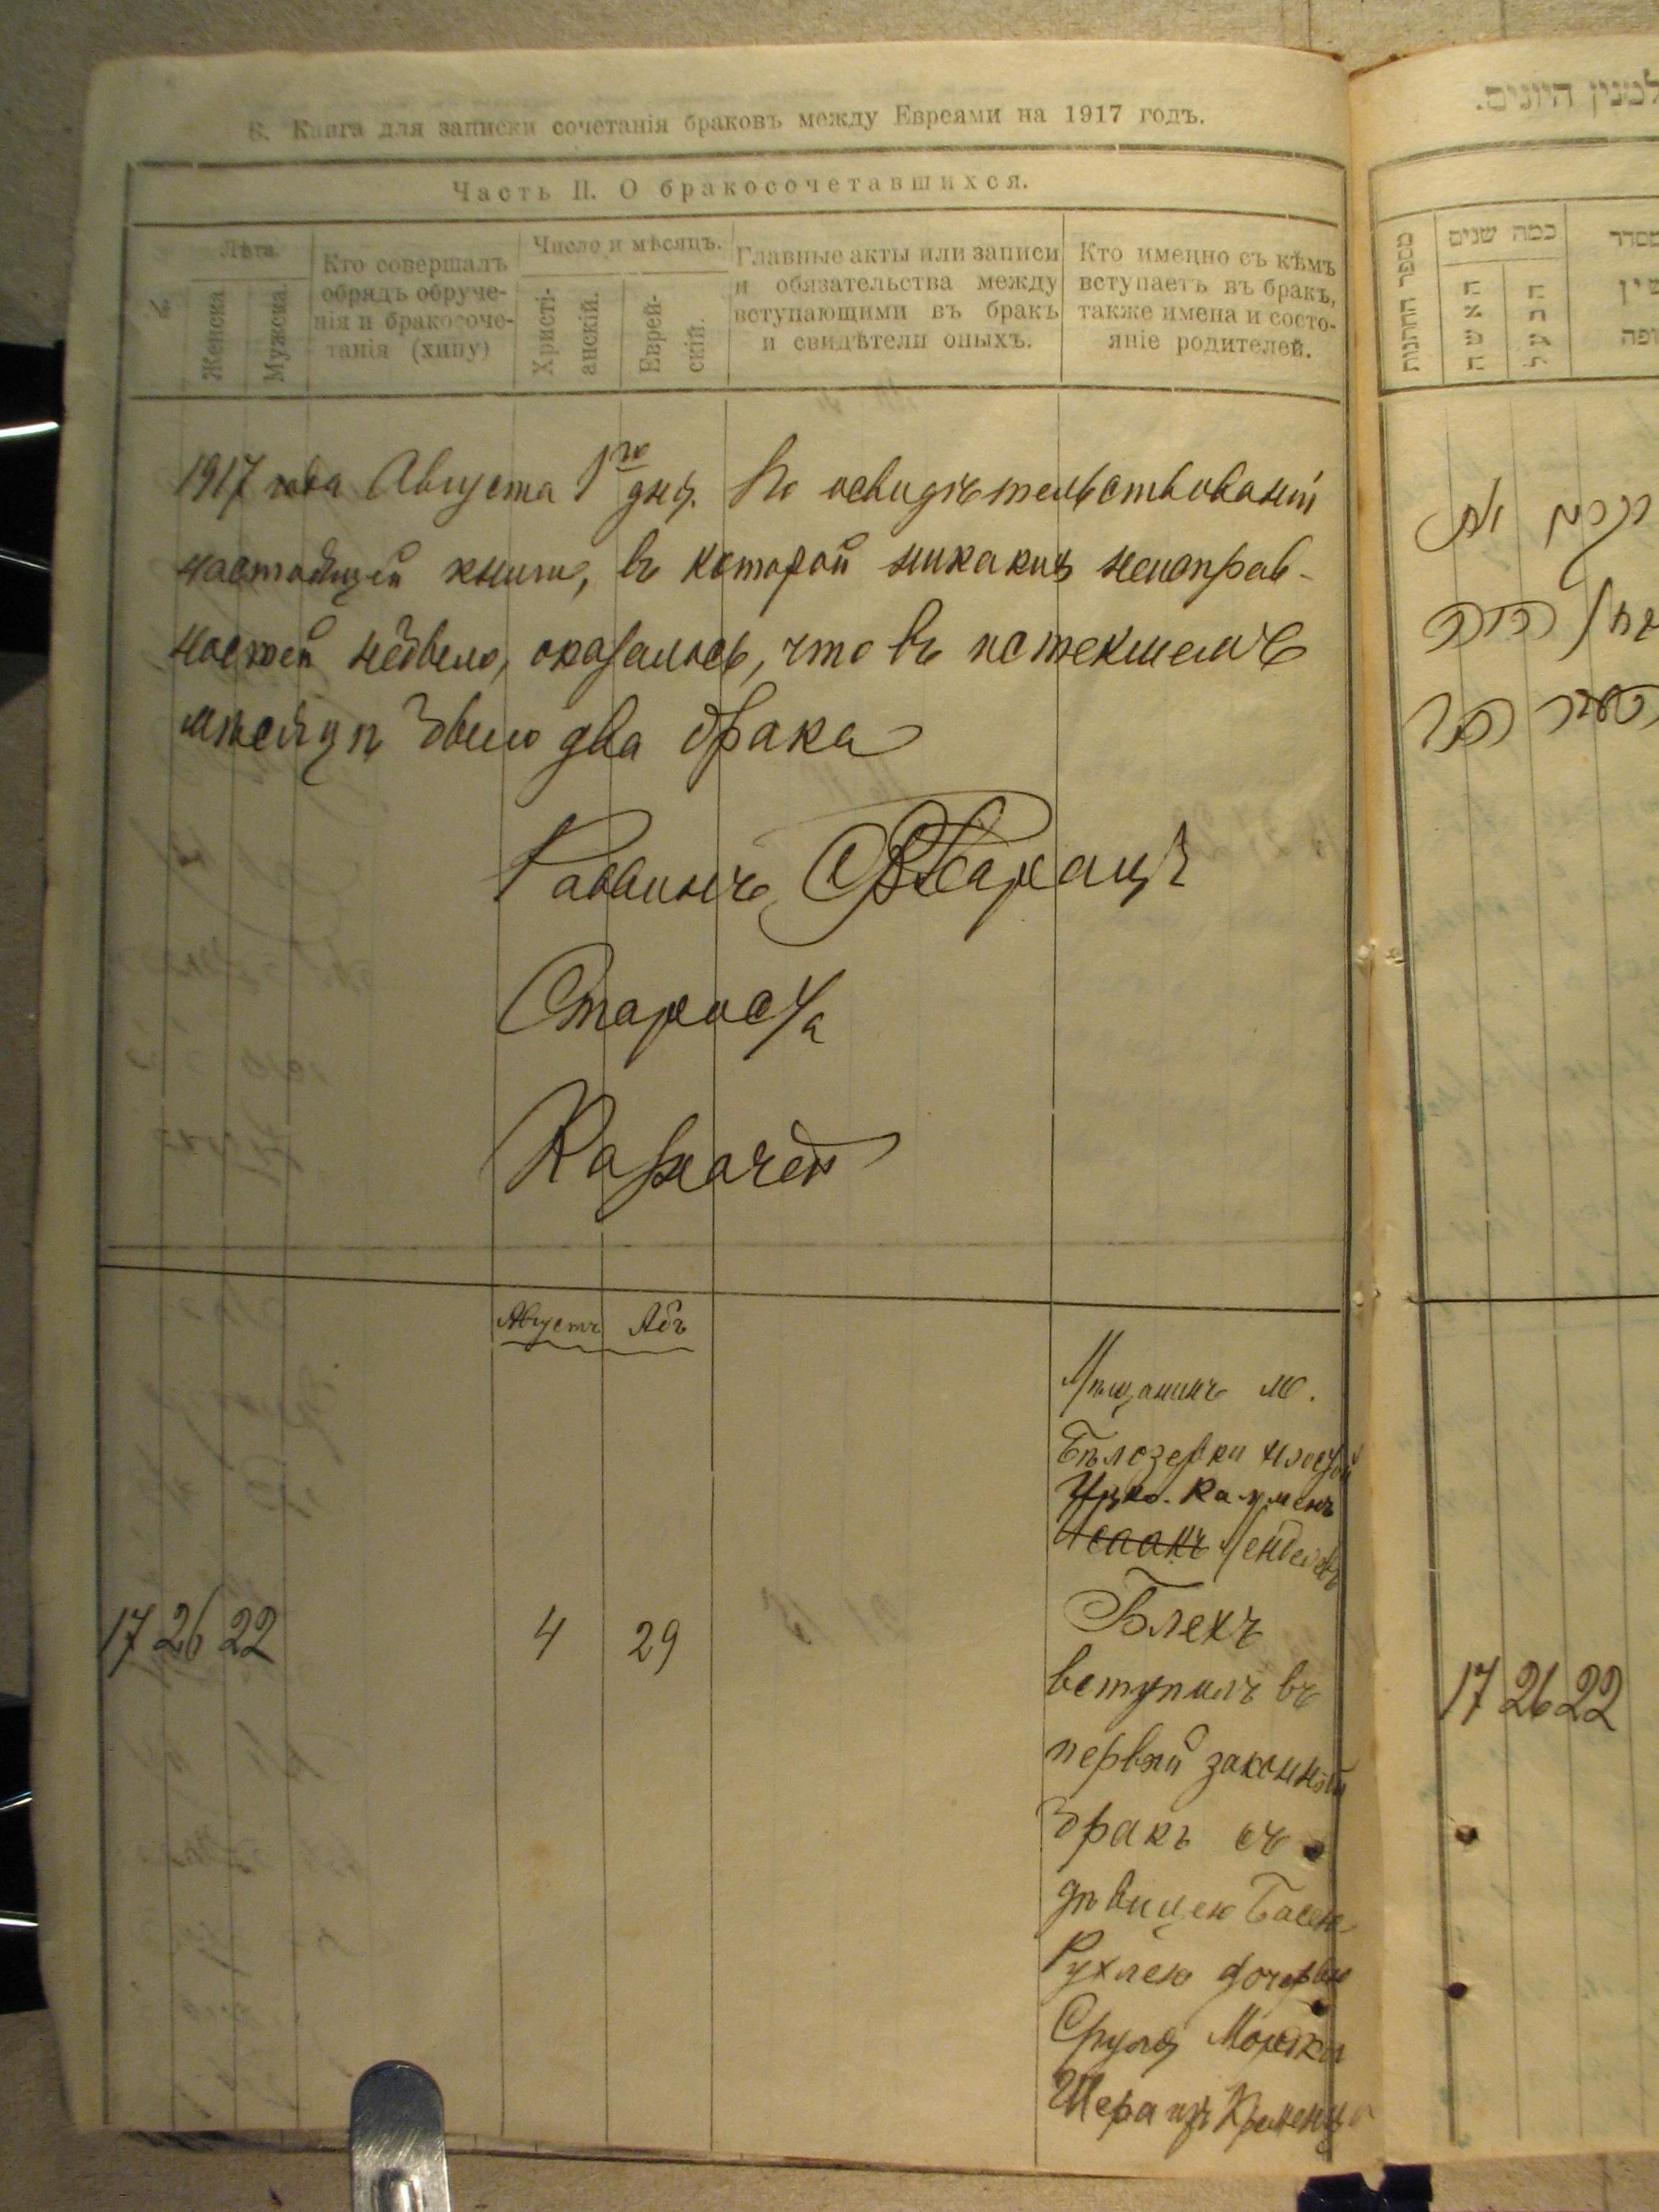 6. Книга для записки сочетанія браковъ между Евреями на 1917 годъ.
Часть II. О бракосочетавшихся.
№
Лѣта.
Женска
Мужска.
Кто совершалъ
обрядъ обруче-
нія и бракосоче-
танія (хипу)
Число и мѣсяцъ.
Христі-
анскій.
Еврей-
скій.
Главные акты или записи
и обязательства между
вступающими въ бракъ
и свидѣтели оныхъ.
Кто именно съ кѣмъ
вступаетъ въ бракъ,
также имена и состо-
яніе родителей.
1917 года Августа 1го дня. По освидѣтельствованіи
настоящей книги, въ которой никакихъ неисправ-
ностей не было, оказалось, что въ истекшемъ
мѣсяцѣ было два брака
Раввинъ
Староста
Казначей
Августъ Абъ
Мѣщанинъ м.
Бѣлозерки
Ицко-Калменъ
Исаакъ Менделевъ
Блехъ
17 26 22 4 29
вступилъ въ
первый законный
бракъ съ
дѣвицею Басею
Рухлею дочерью
Сруля Мошки
Шера изъ Кременца
למנין היונים.
מספר החתונות
כמה שנים
האשה
הבעל
17 26 22